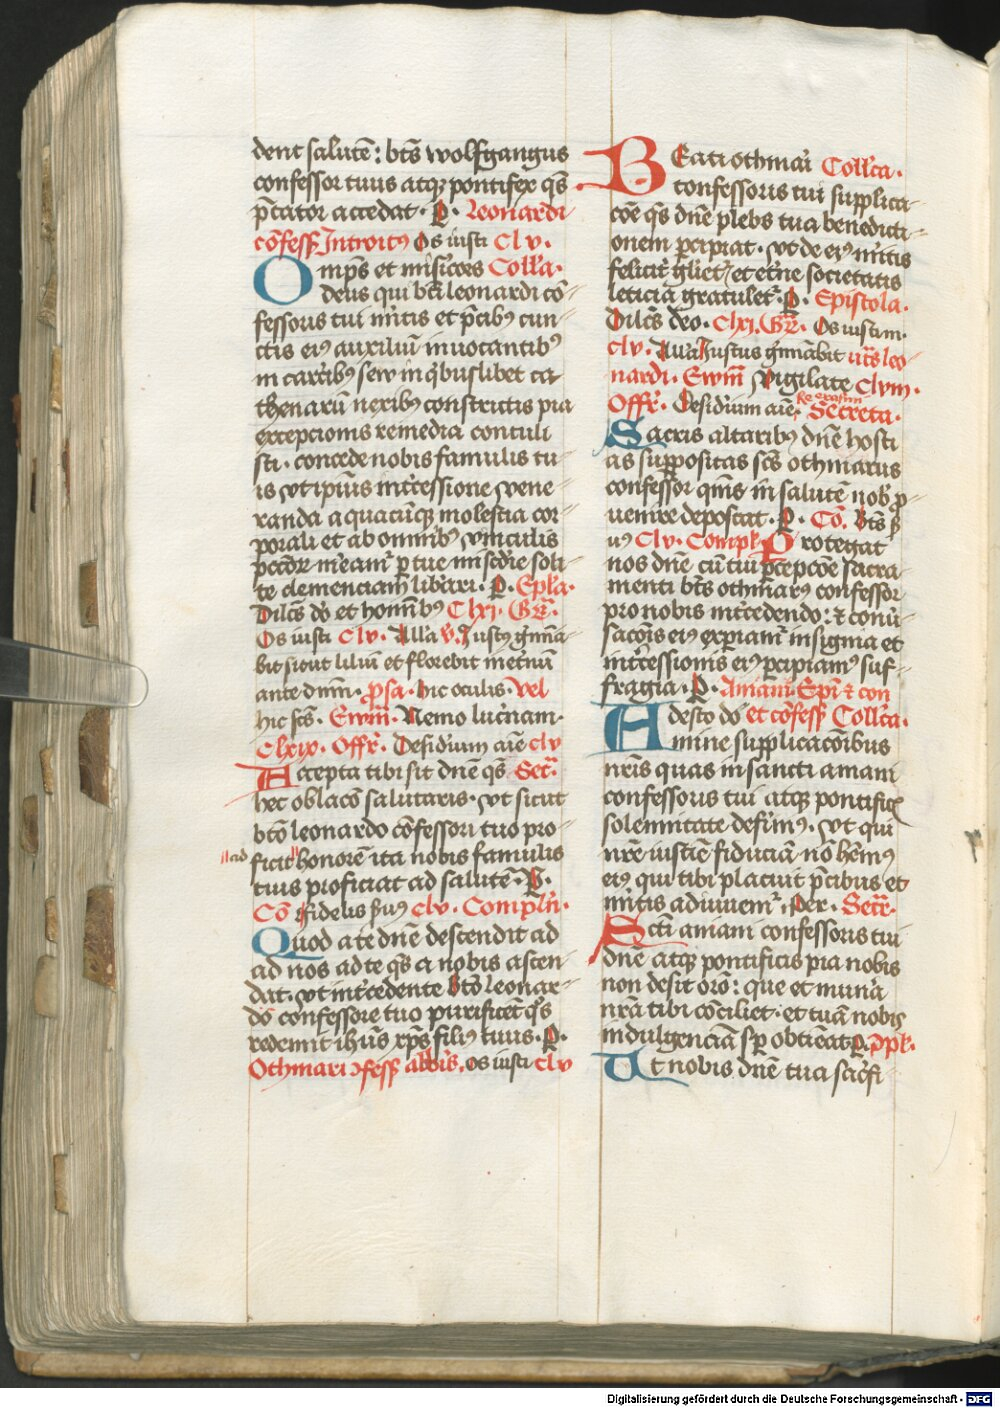 dent salutē: bt̄s wolfgangus
confessor tuus atqꝫ pontifex q̄s
p̄cator accedat · P · Leonardi
cōfess̄ Introitꝰ Os iusti Cl v ·
Omp̄s et mīsicors Coll'a ·
deus qui bt̄i leonardi cō-
fessoris tui mītis et p̄cibꝰ cun-
ctis eiꝰ auxiliū inuocantibꝰ
in carc̄ibꝰ seu in q̄buslibet ca
thenarū nexibꝰ constrictis pia
excepcionis remedia contuli
sti · concede nobis famulis tu-
is vt ipīus int̄cessione vene-
randa a quacūqꝫ molestia cor-
porali et ab omībꝰ vinculis
pcc̄or m̄eamꝰ p tue mīscdīe soli-
te clemenciam lib̄ari · P · Ep̄la ·
Dilcūs dō et homībꝰ Clxi · Gr̄ ·
Os iusti Clv · All'a v · Iustꝰ ḡmīa-
bit sicut liliū et florebit in et̄nū
ante dnm̄ · p̄sa · hic oculis · vel
hic sc̄s · Ewm̄ · Nemo luc̄nam ·
Clxix · Off̄r · Desidiūm aīe clv
Accepta tibi sit dnē q̄s Secr̄ ·
hec oblacō salutaris · vt sicut
bt̄o leonardo cōfessori tuo pro-
ad ficit honorē ita nobis famulis
tuis proficiat ad salutē · P ·
Cō fidelis s̄uꝰ clv · Compl'n ·
Quod a te dnē descendit ad
ad nos ad te q̄s a nobis ascen
dat · vt int̄cedente bt̄o leonar-
dō confessore tuo purificet q̄s
redemit ih̄us xp̄s filiꝰ tuus · P ·
Othmari ɔfess̄ abb̄is, os iusti clv
Beati othmari Coll'ca ·
confessoris tui supplica-
cōe q̄s dnē plebs tua benedicti-
onem percipiat · vt de eiꝰ mītis
felicit̄ gl'iet̄ et et̄ne societatis
leticia gratulet̄ · P · Epistola ·
Dilcūs deo · Clxi, Gr̄ · Os iusti m̄ ·
clv · All'a Iustus ḡmīabit ut s̄ leo
nardi · Ewm̄ Vigilate Clvm ·
Off̄r · Desidium aīe, Secreta ·
Sacris altaribꝰ dnē hosti
as suppositas sc̄s othmarus
confessor q̄ms in salutē nob' p-
uenire deposcat · P · Cō · Bt̄s s̄
uꝰ Clv · Compl · Protegat
nos dnē cū tui p̄cepcōe sacra-
menti bt̄s othmarꝰ confessor
pro nobis int̄cedendo: ⁊ conū-
sacōis eiꝰ expiamꝰ insignia et
int̄cessionis eiꝰ p̄cipiamꝰ suf-
fragia · P · Amani · Epī ⁊ con
Adesto dō et cōfess̄ Coll'ca ·
mine supplicacōibus
nr̄is quas in sancti amani
confessoris tui atqꝫ pontific̄
solemnitate defīmꝰ · vt qui
nr̄e iusticīe fiduciā nō hēmꝰ
eiꝰ qui tibi placuit p̄cibus et
m̄itis adiuuem̄ · Per · Secr̄ ·
Sc̄ti amani confessoris tui
dnē atqꝫ pontificis pia nobis
non desit orō: que et mun̄a
nr̄ā tibi cōciliet · et tuā nobis
indulgenciā sp̄ obtineat P · Ɔpl ·
Ut nobis dnē tua sac̄fi
Digitalisierung gefördert durch die Deutsche Forschungsgemeinschaft - DFG